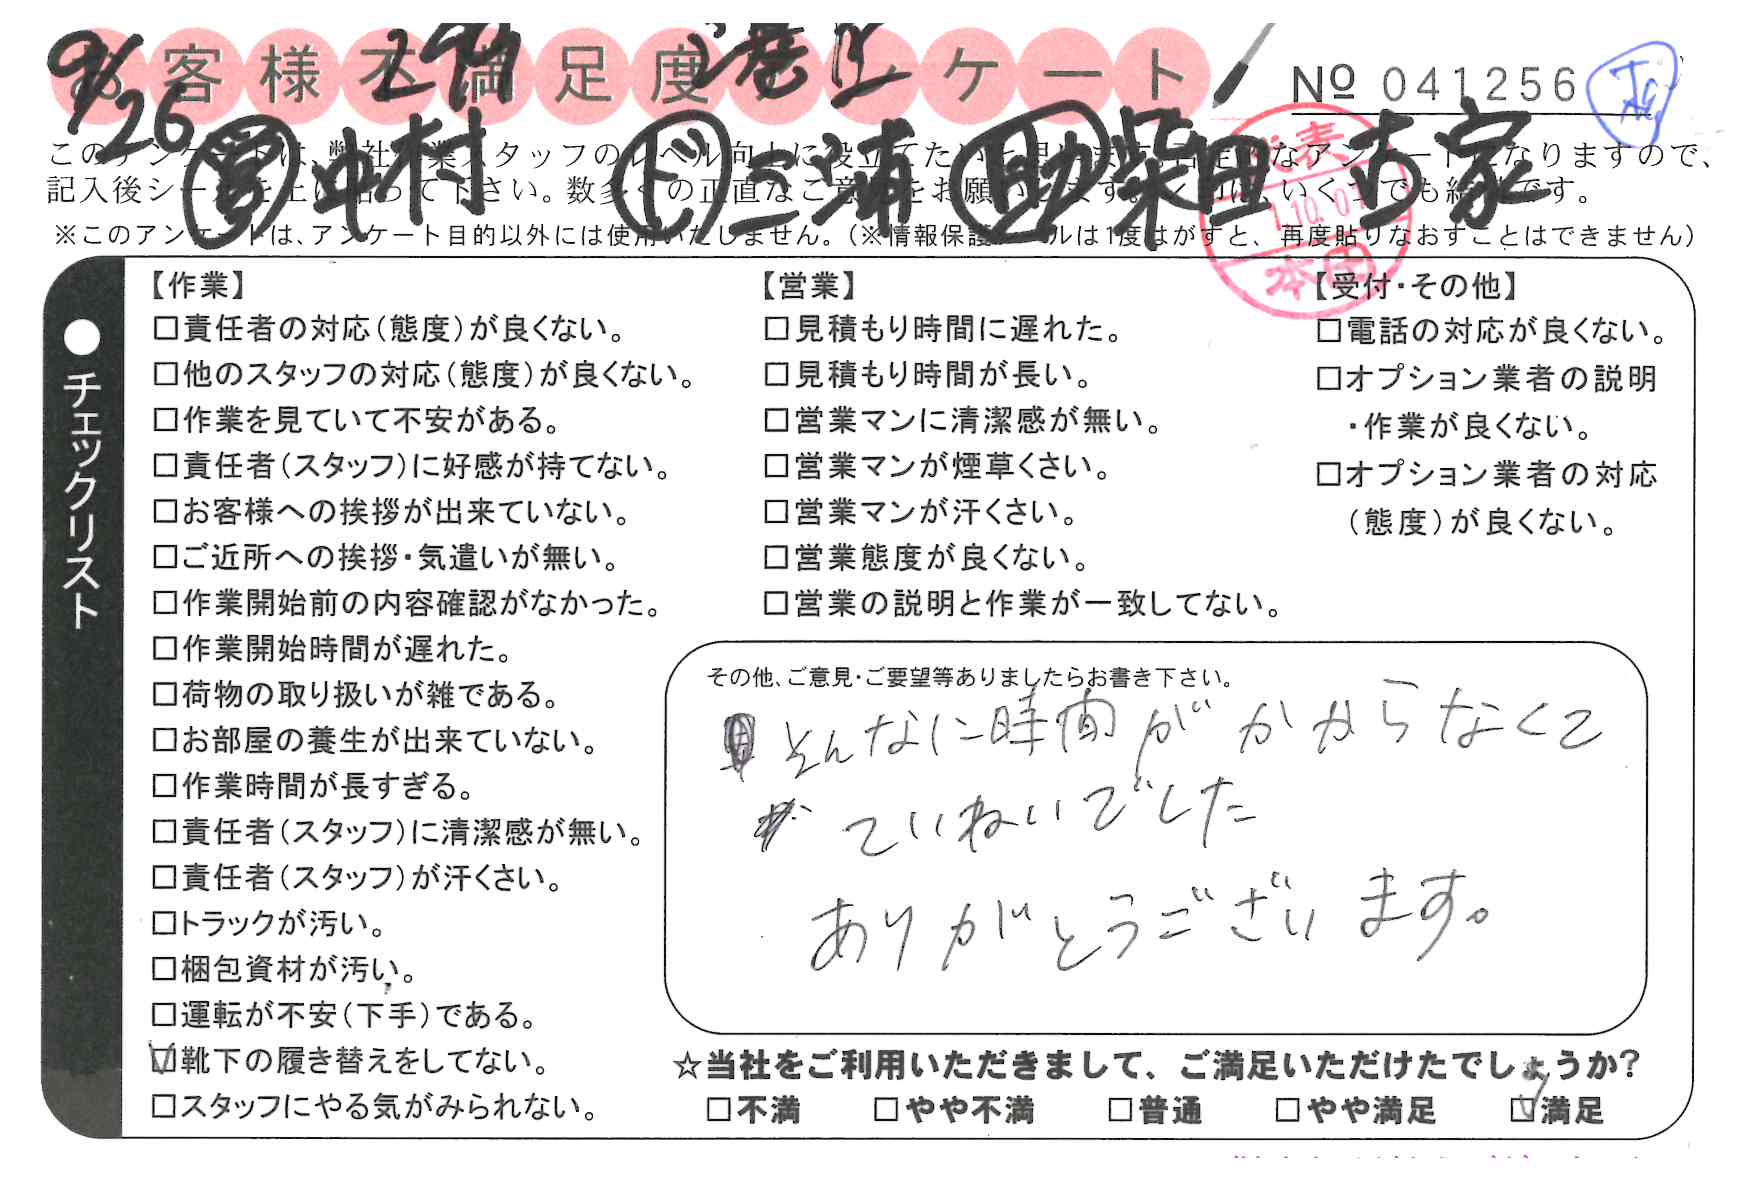 お客様不満足度アンケート
№ 041256
9/26
営 中村 ド 三浦 助 柴田 古家
このアンケートは、弊社作業スタッフのレベル向上に役立てたいと思います。アンケートになりますので、
記入後シールを上に貼って下さい。数多くの正直なご意見をお願いします。いくつでも結構です。
※このアンケートは、アンケート目的以外には使用いたしません。(※情報保護シールは1度はがすと、再度貼りなおすことはできません)
代表
1.10.01
本田
●チェックリスト
【作業】
□責任者の対応(態度)が良くない。
□他のスタッフの対応(態度)が良くない。
□作業を見ていて不安がある。
□責任者(スタッフ)に好感が持てない。
□お客様への挨拶が出来ていない。
□ご近所への挨拶・気遣いが無い。
□作業開始前の内容確認がなかった。
□作業開始時間が遅れた。
□荷物の取り扱いが雑である。
□お部屋の養生が出来ていない。
□作業時間が長すぎる。
□責任者(スタッフ)に清潔感が無い。
□責任者(スタッフ)が汗くさい。
□トラックが汚い。
□梱包資材が汚い。
□運転が不安(下手)である。
☑靴下の履き替えをしてない。
□スタッフにやる気がみられない。
【営業】
□見積もり時間に遅れた。
□見積もり時間が長い。
□営業マンに清潔感が無い。
□営業マンが煙草くさい。
□営業マンが汗くさい。
□営業態度が良くない。
□営業の説明と作業が一致してない。
【受付・その他】
□電話の対応が良くない。
□オプション業者の説明
・作業が良くない。
□オプション業者の対応
(態度)が良くない。
その他、ご意見・ご要望等ありましたらお書き下さい。
そんなに時間がかからなくて
ていねいでした
ありがとうございます。
☆当社をご利用いただきまして、ご満足いただけたでしょうか?
□不満 □やや不満 □普通 □やや満足 ☑満足